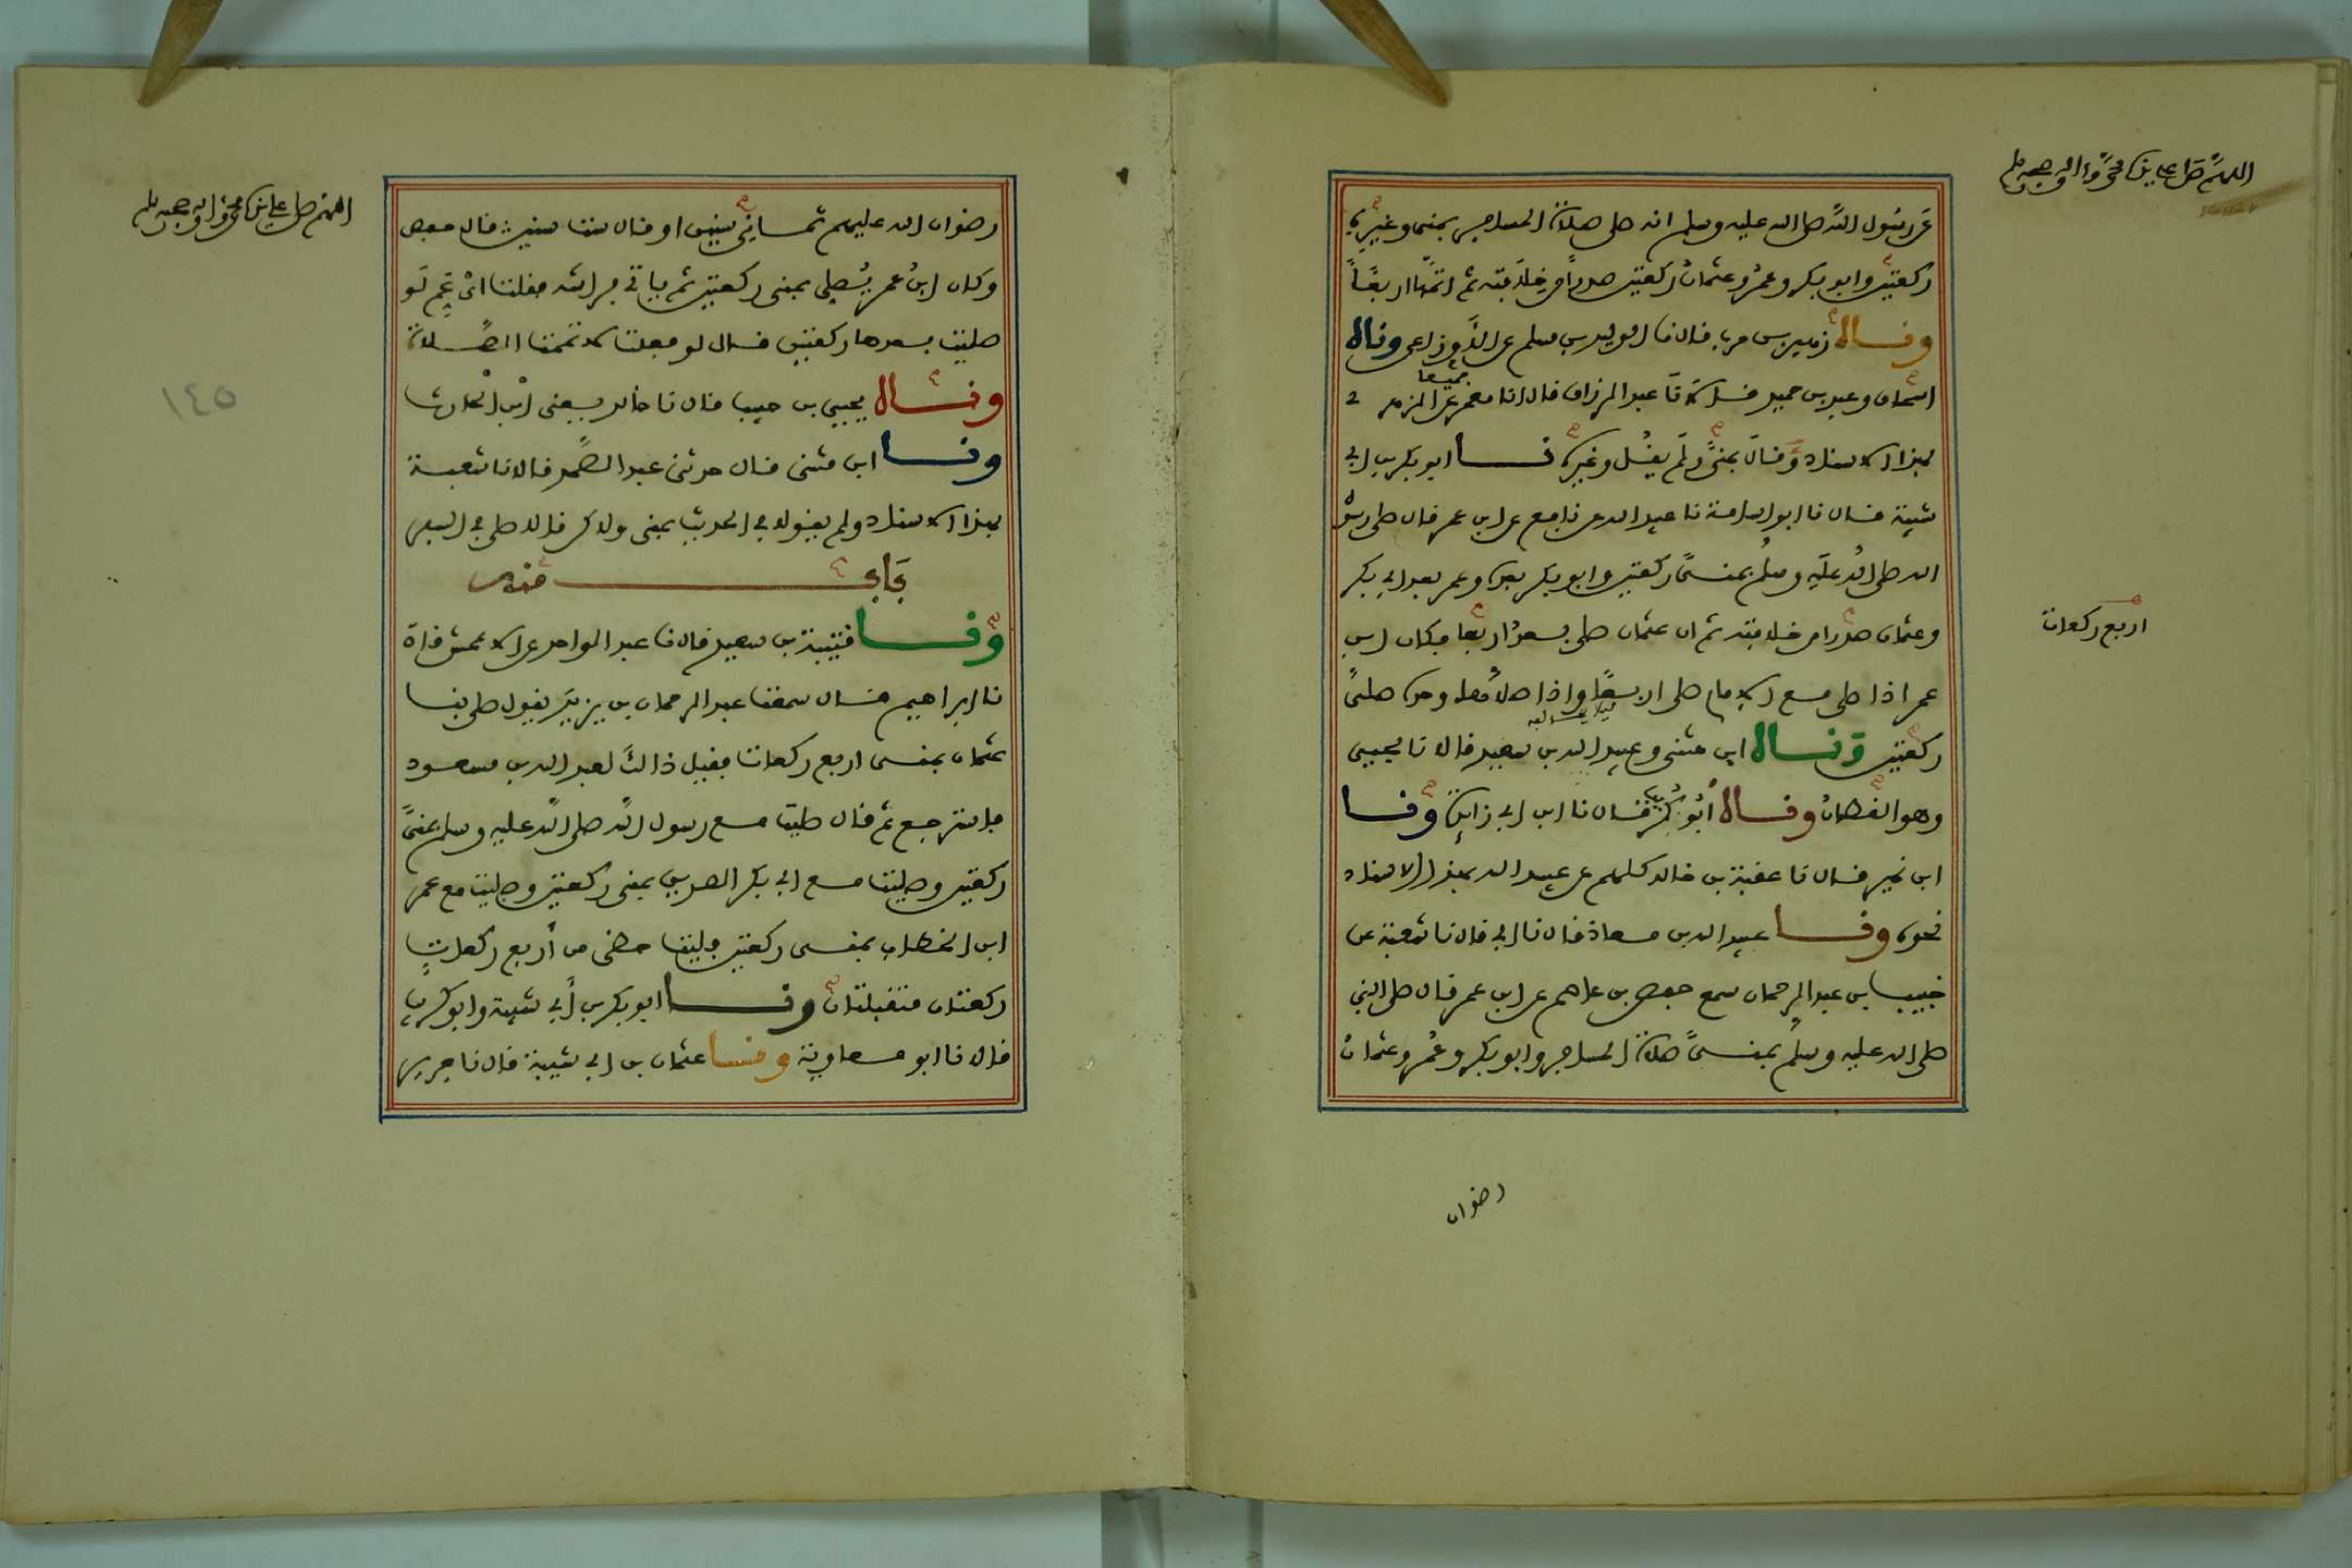 اللهم صل على سيدنا محمد وآله وصحبه وسلم
عن رسول الله صلى الله عليه وسلم انه صلى صلاة المسافر بمنى وغيره
ركعتين وابو بكر وعمر وعثمان ركعتين صدرا من خلافته ثم اتمها اربعا
وناه زهير بن حرب قال نا الوليد بن مسلم عن الأوزاعي وناه
اسحاق وعبد بن حميد قالا نا عبد الرزاق قال انا معمر جميعا عن الزهري
بهذا الاسناد وقال بمنى ولم يقل وغيره نا ابو بكر بن ابي
شيبة قال نا ابو اسامة نا عبيد الله عن نافع عن ابن عمر قال صلى رسول
الله صلى الله عليه وسلم بمنى ركعتين وابو بكر بعده وعمر بعد ابي بكر
وعثمان صدرا من خلافته ثم ان عثمان صلى بعد اربعا فكان ابن
اربع ركعات
عمر اذا صلى مع الامام صلى اربعا واذا صلاها وحده صلى
ركعتين وناه ابن مثنى وعبيد الله بن سعيد قالا نا يحيى
وهو القطان وناه أبو كريب قال نا ابن ابي زائدة ونا
ابن نمير قال نا عقبة بن خالد كلهم عن عبيد الله بهذا الاسناد
نحوه ونا عبيد الله بن معاذ قال نا ابي قال نا شعبة عن
خبيب بن عبد الرحمان سمع حفص بن عاصم عن ابن عمر قال صلى النبي
صلى الله عليه وسلم بمنى صلاة المسافر وابو بكر وعمر وعثمان
رضوان
اللهم صل على سيدنا محمد وآله وصحبه وسلم
رضوان الله عليهم ثماني سنين او قال ست سنين قال حفص
وكان ابن عمر يصلي بمنى ركعتين ثم ياتي فراشه فقلت اي عم لو
صليت بعدها ركعتين قال لو فعلت لاتممت الصلاة
وناه يحيى بن حبيب قال نا خالد يعني ابن الحارث
١٤٥
ونا ابن مثنى قال حدثني عبد الصمد قالا نا شعبة
بهذا الاسناد ولم يقولا في الحديث بمنى ولاكن قالا صلى في السفر
باب منه
ونا قتيبة بن سعيد قال نا عبد الواحد عن الاعمش قال
نا ابراهيم قال سمعت عبد الرحمان بن يزيد يقول صلى بنا
عثمان بمنى اربع ركعات فقيل ذالك لعبد الله بن مسعود
فاسترجع ثم قال صليت مع رسول الله صلى الله عليه وسلم بمنى
ركعتين وصليت مع ابي بكر الصديق بمنى ركعتين وصليت مع عمر
ابن الخطاب بمنى ركعتين فليت حظي من أربع ركعات
ركعتان متقبلتان ونا ابو بكر بن أبي شيبة وابو كريب
قالا نا ابو معاوية ونا عثمان بن ابي شيبة قال نا جرير